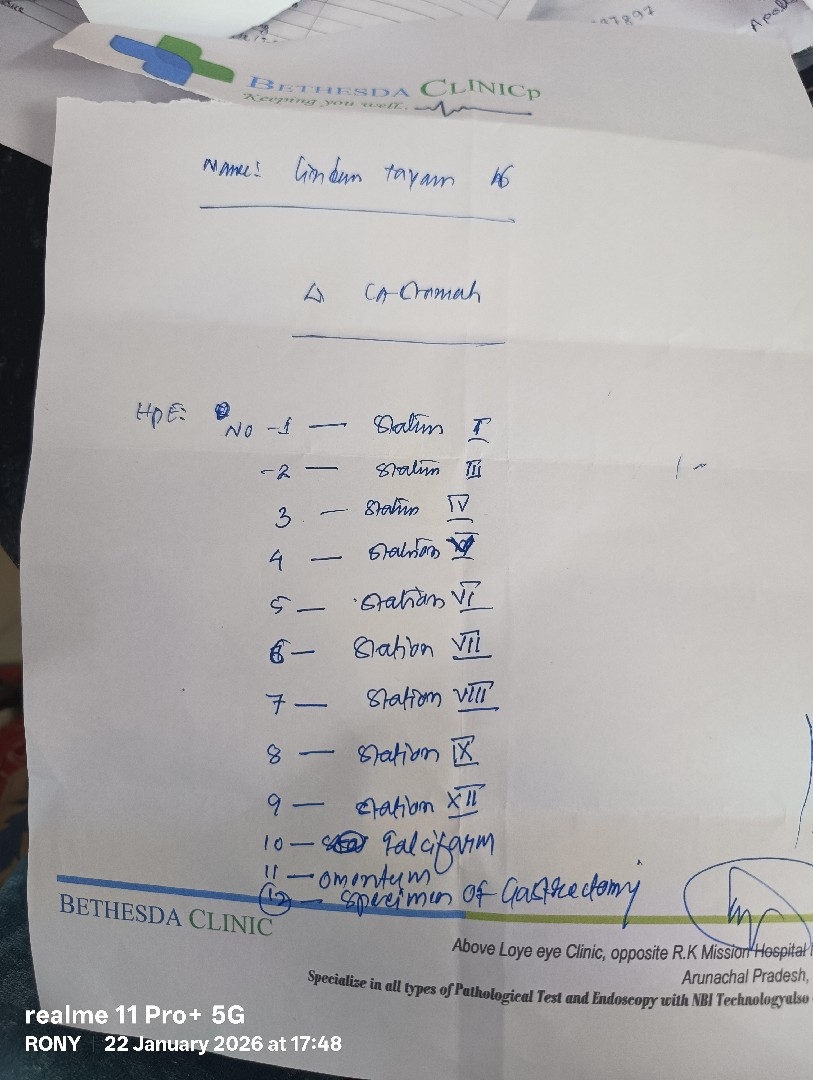 97897
Apoll
BETHESDA CLINICp
Keeping you well..
Name:
Δ CA
HPE: NO -1 — Station I
-2 — Station III
3 — Station IV
4 — Station V
5 — Station VI
6 — Station VII
7 — Station VIII
8 — Station IX
9 — Station XII
10 — Falcifarm
11 — omentum
12 — Specimen of Gastrectomy
BETHESDA CLINIC
Above Loye eye Clinic, opposite R.K Mission Hospital
Arunachal Pradesh,
Specialize in all types of Pathological Test and Endoscopy with NBI Technologyalso
realme 11 Pro+ 5G
RONY | 22 January 2026 at 17:48